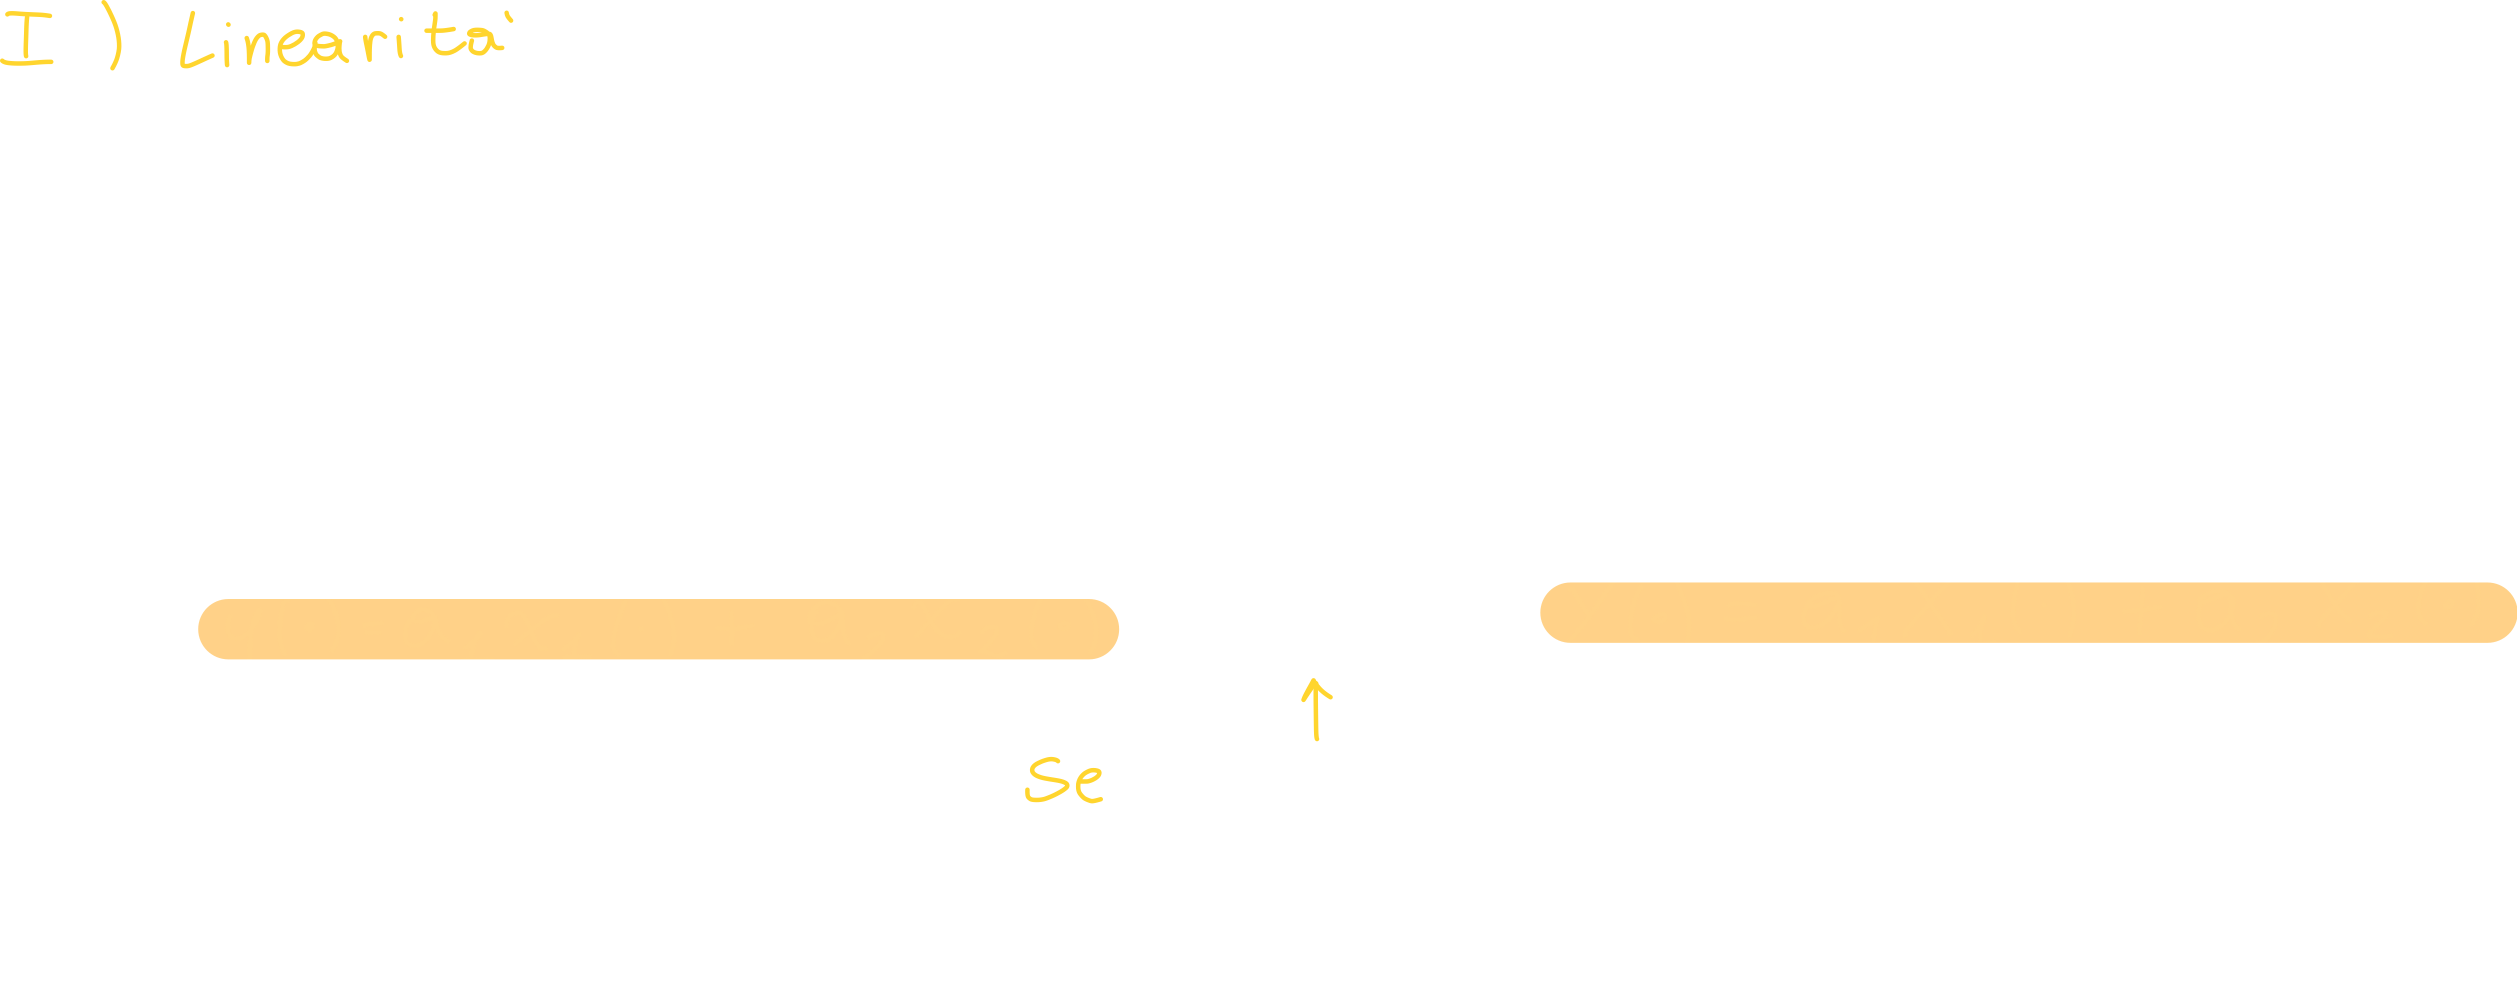 I) Linearita'
Se